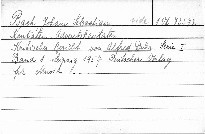 Bach Johann Sebastian
Kantaten, Adventskantaten
Kritischer Bericht von Alfred Dürr Serie I
Band 1 Leipzig 195 Deutscher Verlag
für Musik